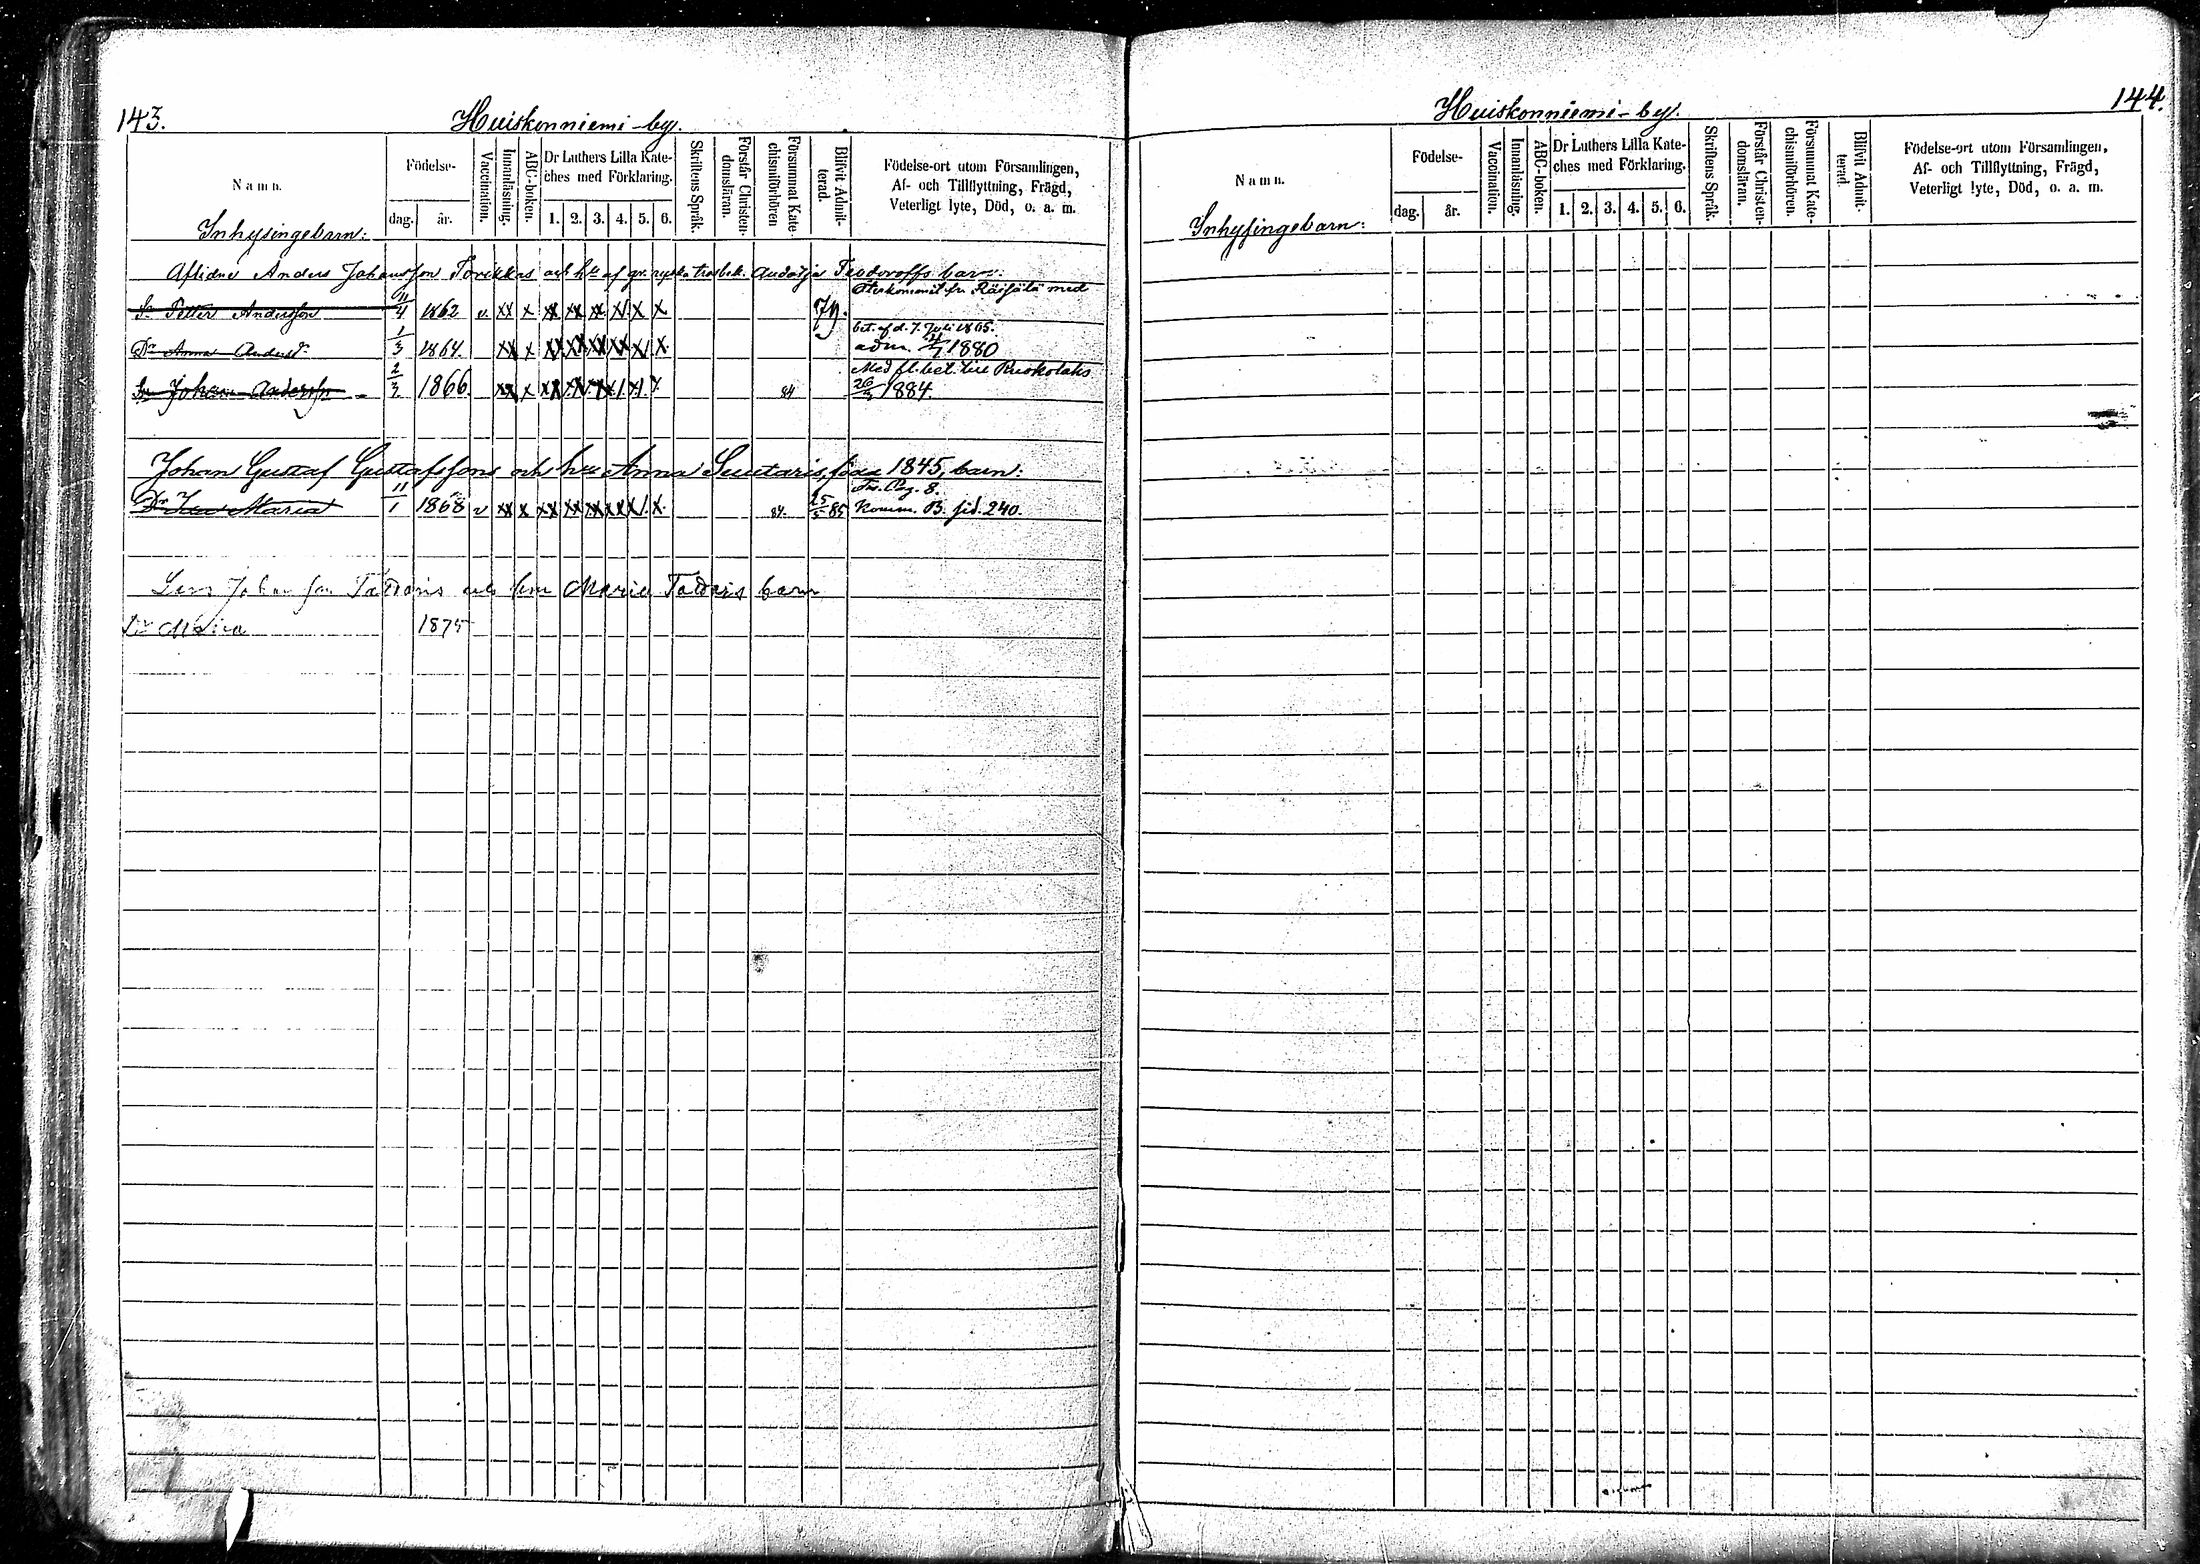 143.
Huiskonniemi-by.
Namn.
Födelse-
dag.
år.
Vaccination.
Innanläsning.
ABC-boken.
Dr Luthers Lilla Kate-
ches med Förklaring.
1. 2. 3. 4. 5. 6.
Skriftens Språk.
Förstår Christen-
domsläran.
Försummat Kate-
chismiförhören
Blifvit Admit-
terad.
Födelse-ort utom Församlingen,
Af- och Tillflyttning, Frägd,
Veterligt lyte, Död, o. a. m.
Inhysingebarn:
Aflidne Anders Johansson Torikkas och hu af gr. ryska trosbek. Audotja Teodoroffs barn:
Återkommit fr. Räisälä med
Sn Petter Andersson 11/4 1862 v. xx x x xx xx x x x 79.
bet. af d. 7 Juli 1865.
Dr Anna Andersdr 1/3 1864. xx x xx xx xx xx x x adm. 4/7 1880
Med fl. bet. till Ruokolaks
Sn Johan Anderss 2/3 1866. xx x 84 26/3 1884.
Johan Gustaf Gustafssons och hu Anna 1845, barn:
Fr. Pag. 8.
Dr Ida Maria 11/1 1868 v xx x xx xx xx xx x x 84. 25/5 85 Komm. B. sid. 240.
Johansson och hu Maria barn
Dr Maria 1875
144.
Huiskonniemi-by.
Namn.
Födelse-
dag.
år.
Vaccination.
Innanläsning.
ABC-boken.
Dr Luthers Lilla Kate-
ches med Förklaring.
1. 2. 3. 4. 5. 6.
Skriftens Språk.
Förstår Christen-
domsläran.
Försummat Kate-
chismiförhören.
Blifvit Admit-
terad.
Födelse-ort utom Församlingen,
Af- och Tillflyttning, Frägd,
Veterligt lyte, Död, o. a. m.
Inhysingebarn: